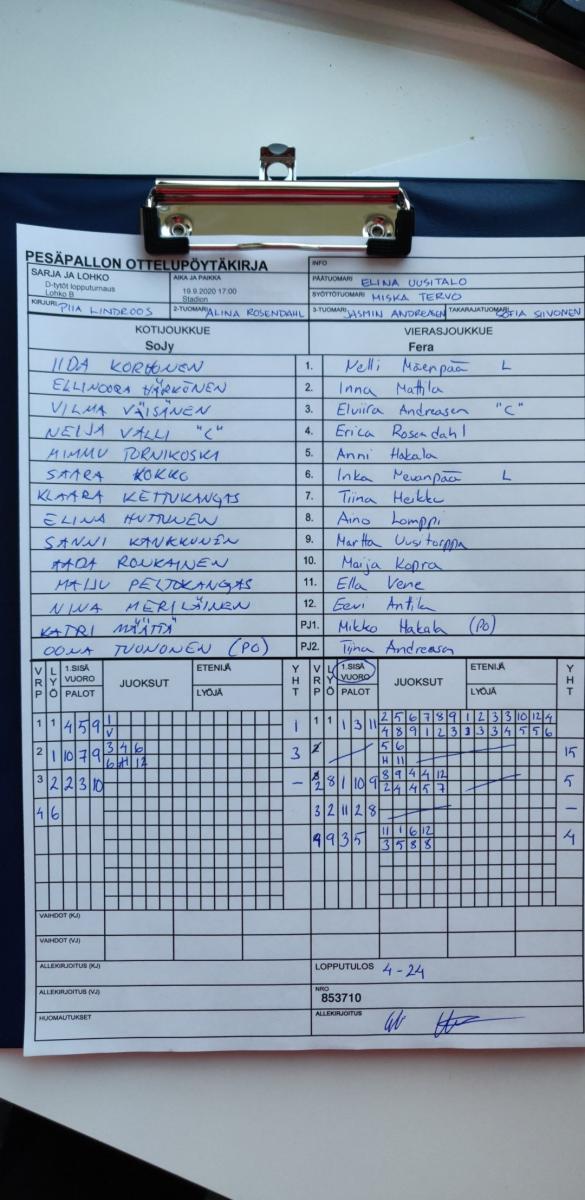 PESÄPALLON OTTELUPÖYTÄKIRJA
INFO
SARJA JA LOHKO
D-tytöt lopputurnaus
Lohko B
AIKA JA PAIKKA
19.9.2020 17:00
Stadion
PÄÄTUOMARI ELINA UUSITALO
SYÖTTÖTUOMARI MISKA TERVO
KIRJURI PIIA LINDROOS 2-TUOMARI ALINA ROSENDAHL 3-TUOMARI JASMIN ANDREASEN TAKARAJATUOMARI SOFIA SIIVONEN
KOTIJOUKKUE VIERASJOUKKUE
SoJy Fera
IIDA KORHONEN 1. Nelli Mäenpää L
ELLINOORA HÄRKÖNEN 2. Inna Mattila
VILMA VÄISÄNEN 3. Elviira Andreasen "C"
NELJA VALLI "C" 4. Erica Rosendahl
MIMMU TORNIKOSKI 5. Anni Hakala
SAARA KOKKO 6. Inka Mevanpää L
KLAARA KETTUKANGAS 7. Tiina Heikku
ELINA HUTTUNEN 8. Aino Lomppi
SANNI KANKKUNEN 9. Martta Uusitorppa
AADA RONKAINEN 10. Maija Kopra
MAIJU PELTOKANGAS 11. Ella Vene
NINA MERILÄINEN 12. Eevi Antila
KATRI MÄÄTTÄ PJ1. Mikko Hakala (PO)
OONA TUONONEN (PO) PJ2. Tiina Andreasen
VRP LYÖ 1.SISÄ VUORO PALOT JUOKSUT ETENIJÄ LYÖJÄ YHT VRP LYÖ 1.SISÄ VUORO PALOT JUOKSUT ETENIJÄ LYÖJÄ YHT
1 1 4 5 9 1 1 1 1 1 3 11 2 5 6 7 8 9 1 2 3 3 10 12 4
V 4 8 9 1 2 3 1 3 3 4 5 5 6
2 1 10 7 9 3 4 6 3 5 6 15
6 H 12 H 11
3 2 2 3 10 - 2 8 1 10 9 8 9 4 4 12 5
2 4 4 5 7
4 6 3 2 11 2 8 -
4 9 3 5 11 1 6 12 4
3 5 8 8
VAIHDOT (KJ)
VAIHDOT (VJ)
ALLEKIRJOITUS (KJ) LOPPUTULOS 4-24
ALLEKIRJOITUS (VJ) NRO
853710
HUOMAUTUKSET ALLEKIRJOITUS